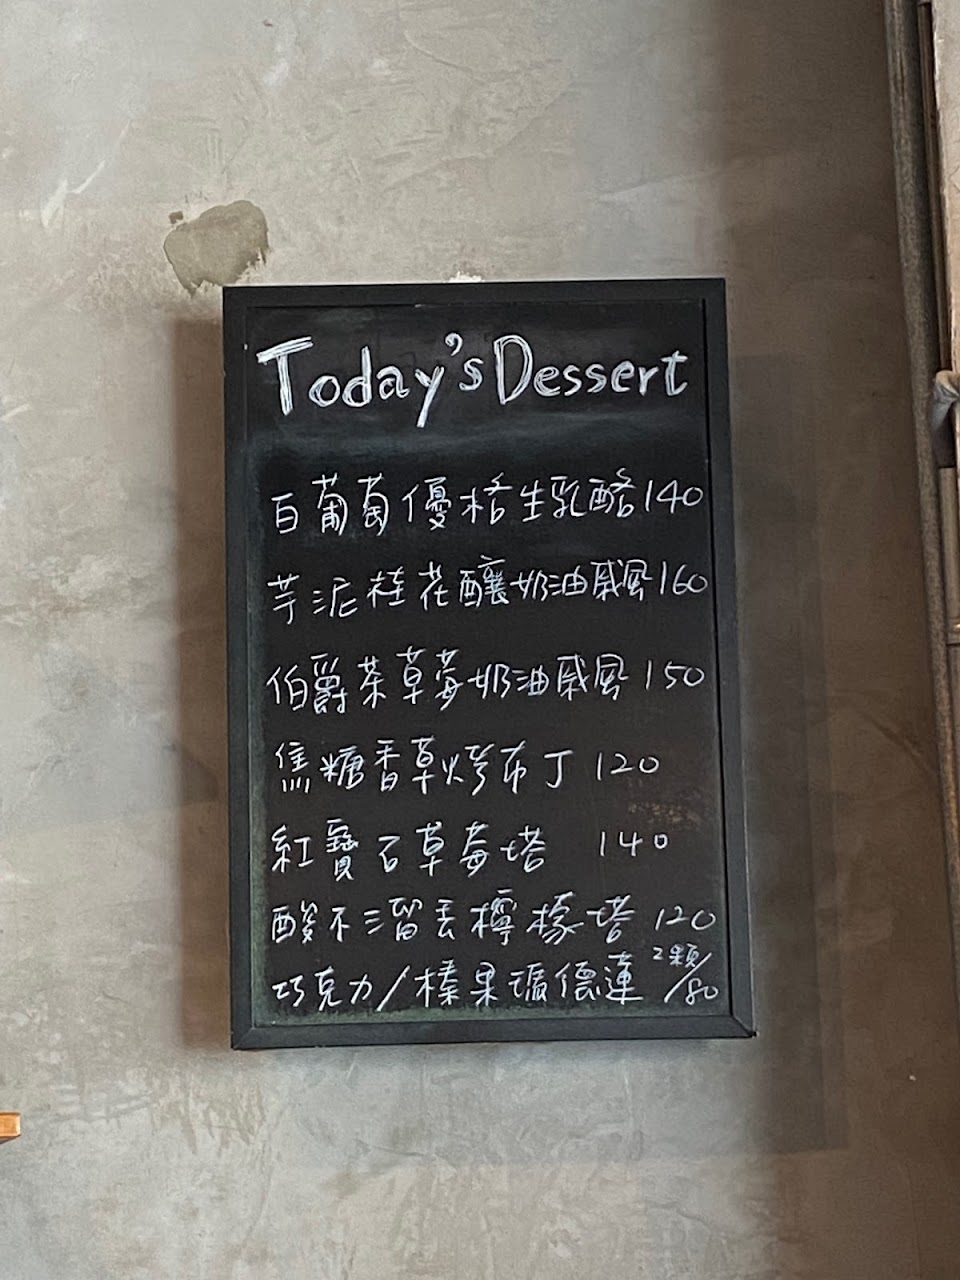 Today's Dessert
白葡萄優格生乳酪 140
芋泥桂花釀奶油戚風 160
伯爵茶草莓奶油戚風 150
焦糖香草烤布丁 120
紅寶石草莓塔 140
酸不溜丟檸檬塔 120
巧克力/榛果瑪德蓮 2顆/80